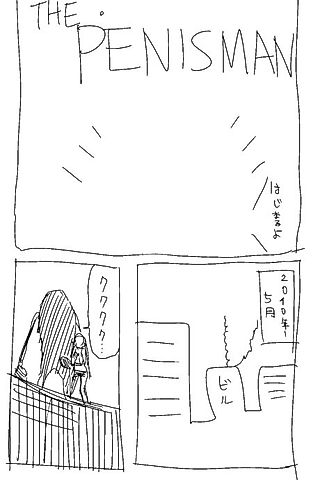 THE
PENISMAN
はじまるよ
2010年
5月
ビル
ククククク…